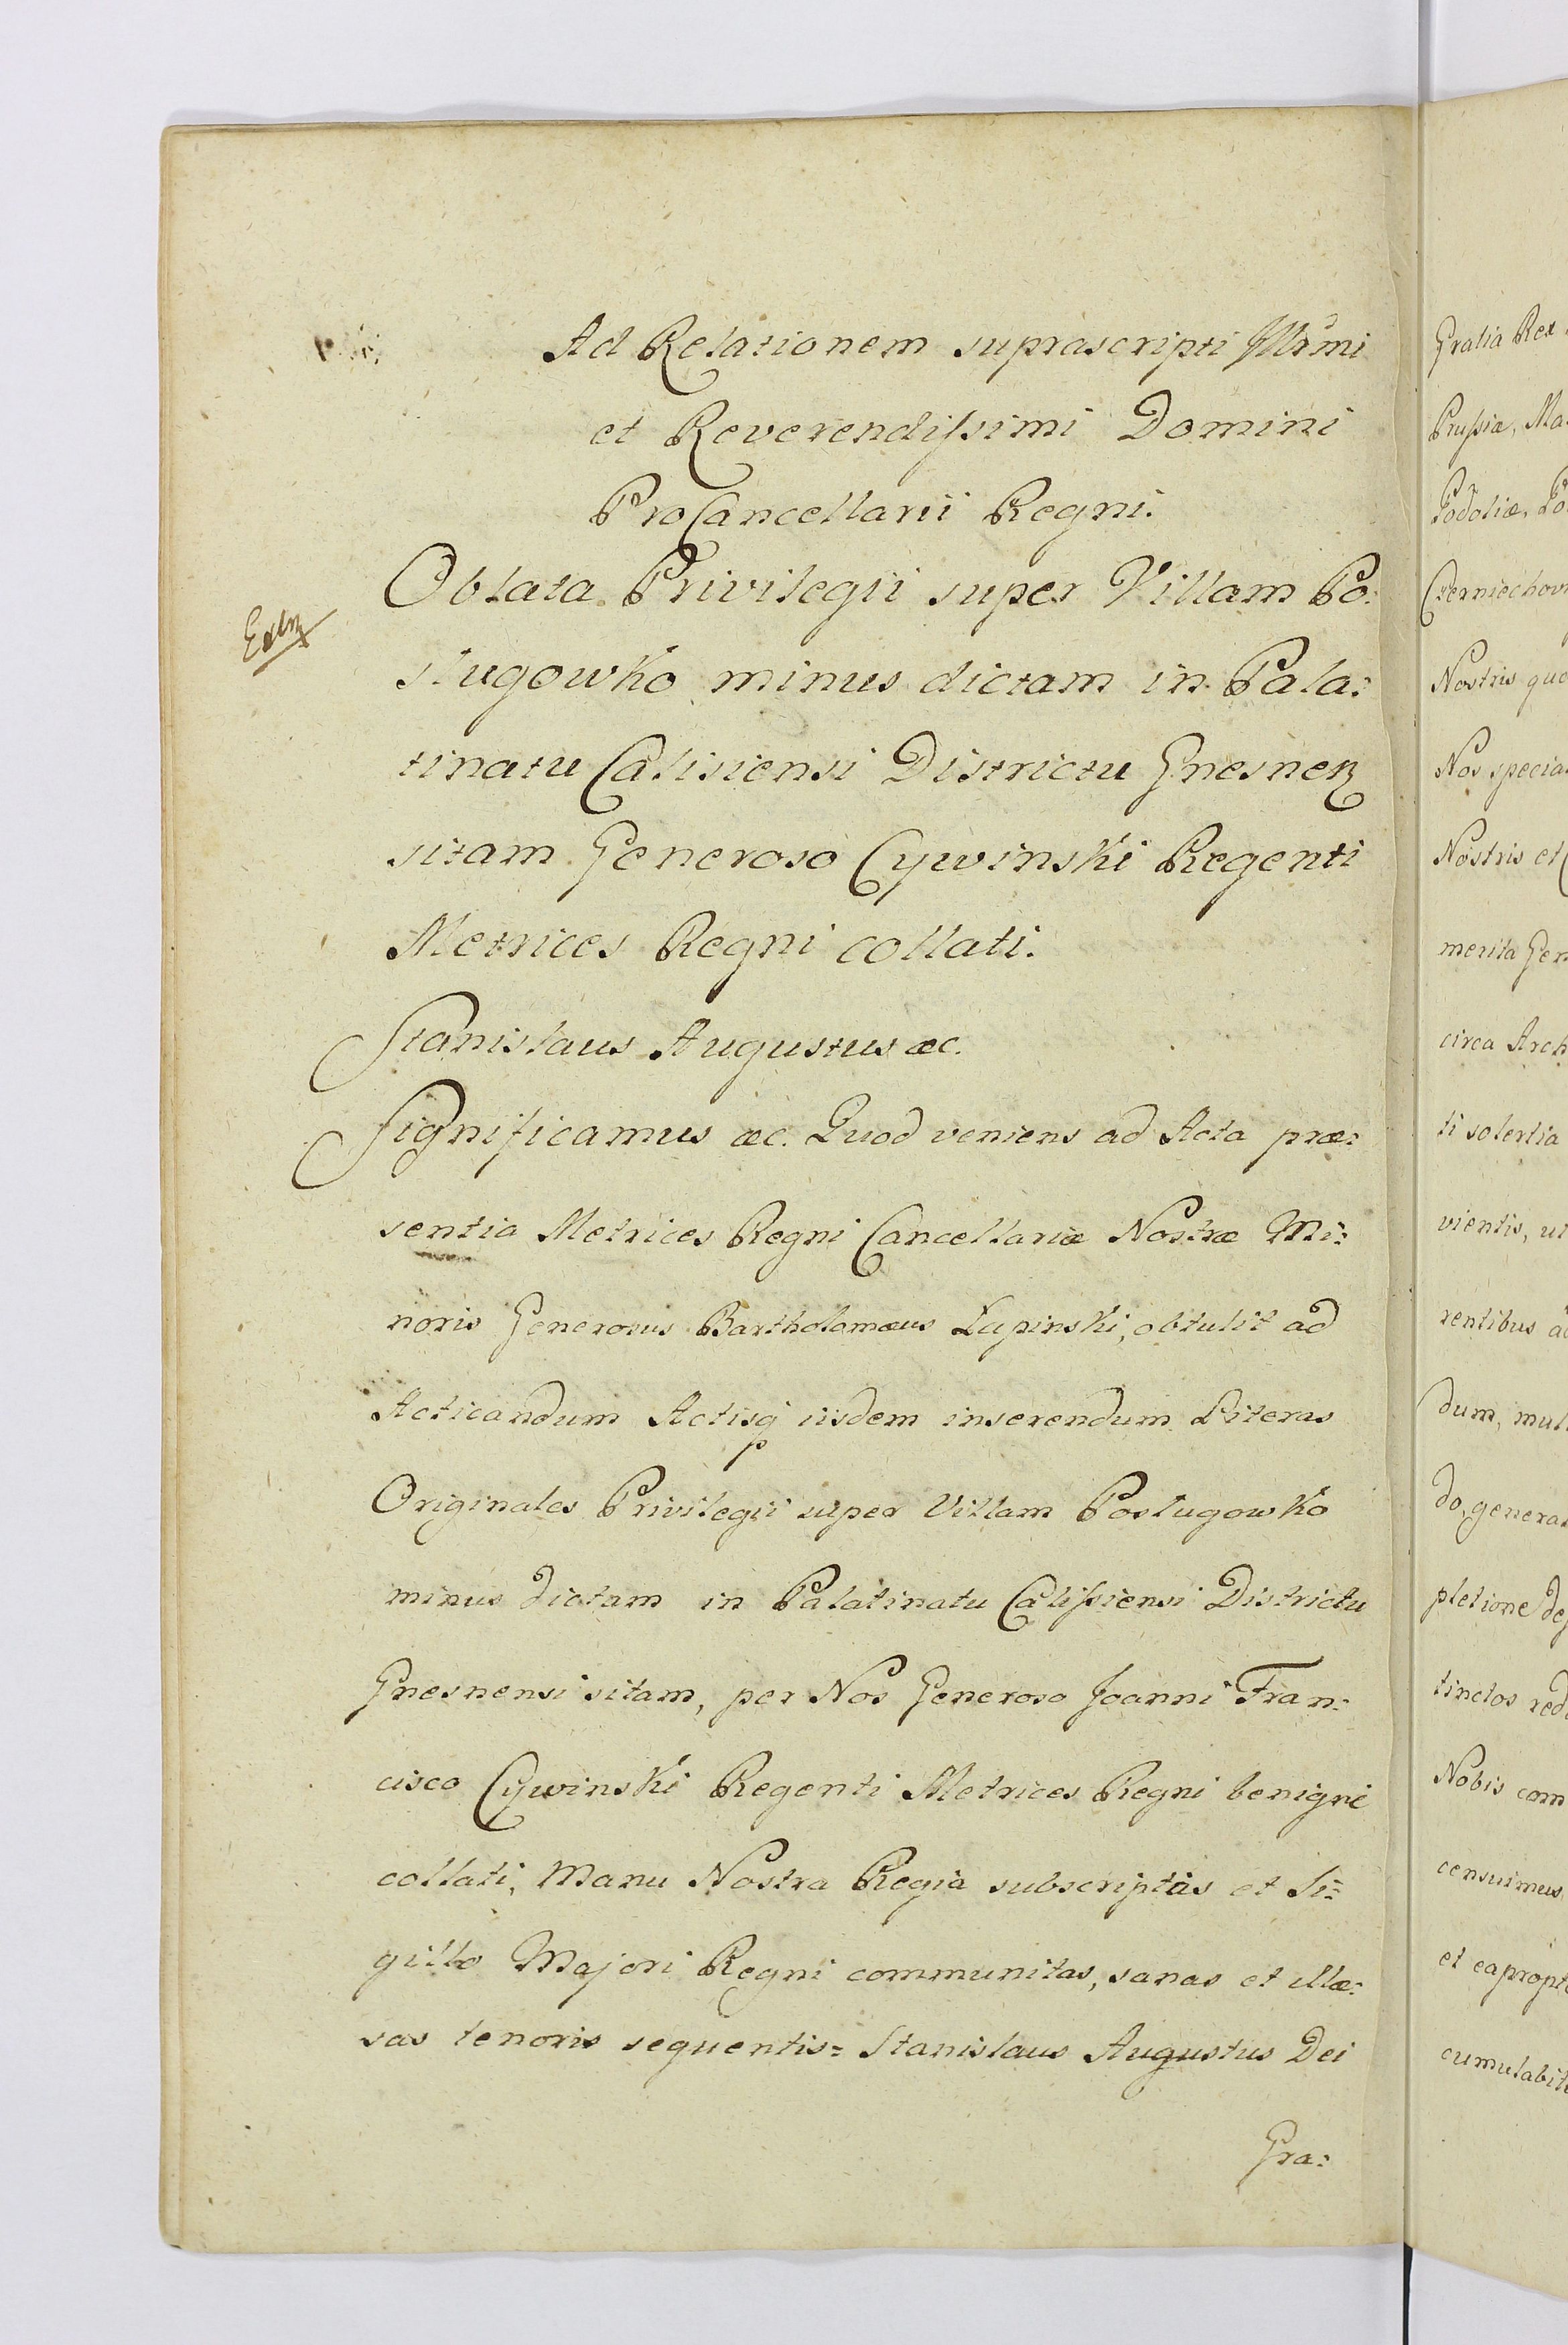 Ad Relationem suprascripti Illrmi
et Reverendissimi Domini
ProCancellarii Regni.
Oblata Privilegii super Villam Po:
sługowko minus dictam in Pala:
tinatu Calisiensi Districtu Gnesnen
sitam Generoso Cywinski Regenti
Metrices Regni collati.
Stanislaus Augustus &c.
Significamus &c. Quod veniens ad Acta præ:
sentia Metrices Regni Cancellariæ Nostræ Mi:
noris Generosus Bartholomæus Łupinski, obtulit ad
Acticandum Actisq iisdem inserendum Literas
Originales Privilegii super Villam Posługowko
minus dictam in Palatinatu Calissiensi Districtu
Gnesnensi sitam, per Nos Generoso Joanni Fran:
cisco Cywinski Regenti Metrices Regni benigne
collati, Manu Nostra Regia subscriptas et Si:
gillo Majori Regni communitas, sanas et illæ:
sas tenoris sequentis= Stanislaus Augustus Dei
Gra:
Gratia Rex
Prussiæ, Ma
Podoliæ,
Czerniechov
Nostris quo
Nos specia
Nostris et
merita Gen
circa Arch
ti solertia
vientis, ut
rentibus
dum, mul
do, genera
pletione de
tinctos red
Nobis com
censuimus
et eapropte
cumulabit